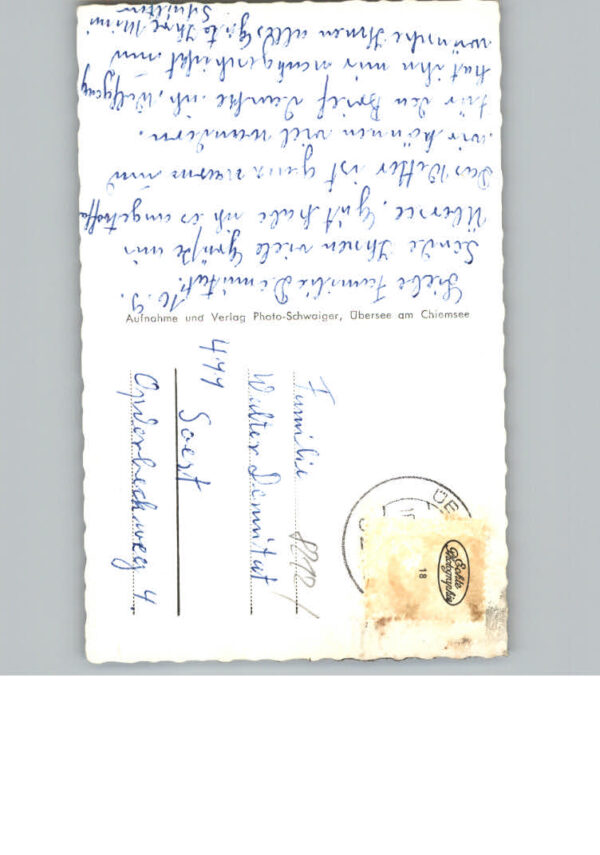 16. 9.
Liebe Familie Demnitat.
Sende Ihnen viele Grüße aus
Übersee, Gut habe ich es angetroffen
Das Wetter ist ganz warm und
wir können viel wandern.
Für den Brief danke ich, Wolfgang
hat ihn mir nachgeschickt und
wünsche Ihnen alles Gute Ihre Mimi
Aufnahme und Verlag Photo-Schwaiger, Übersee am Chiemsee
Familie
Walter Demnitat
477 Soest
Opderbeckweg 4
8212/
ÜBE
Echte Photographie
18